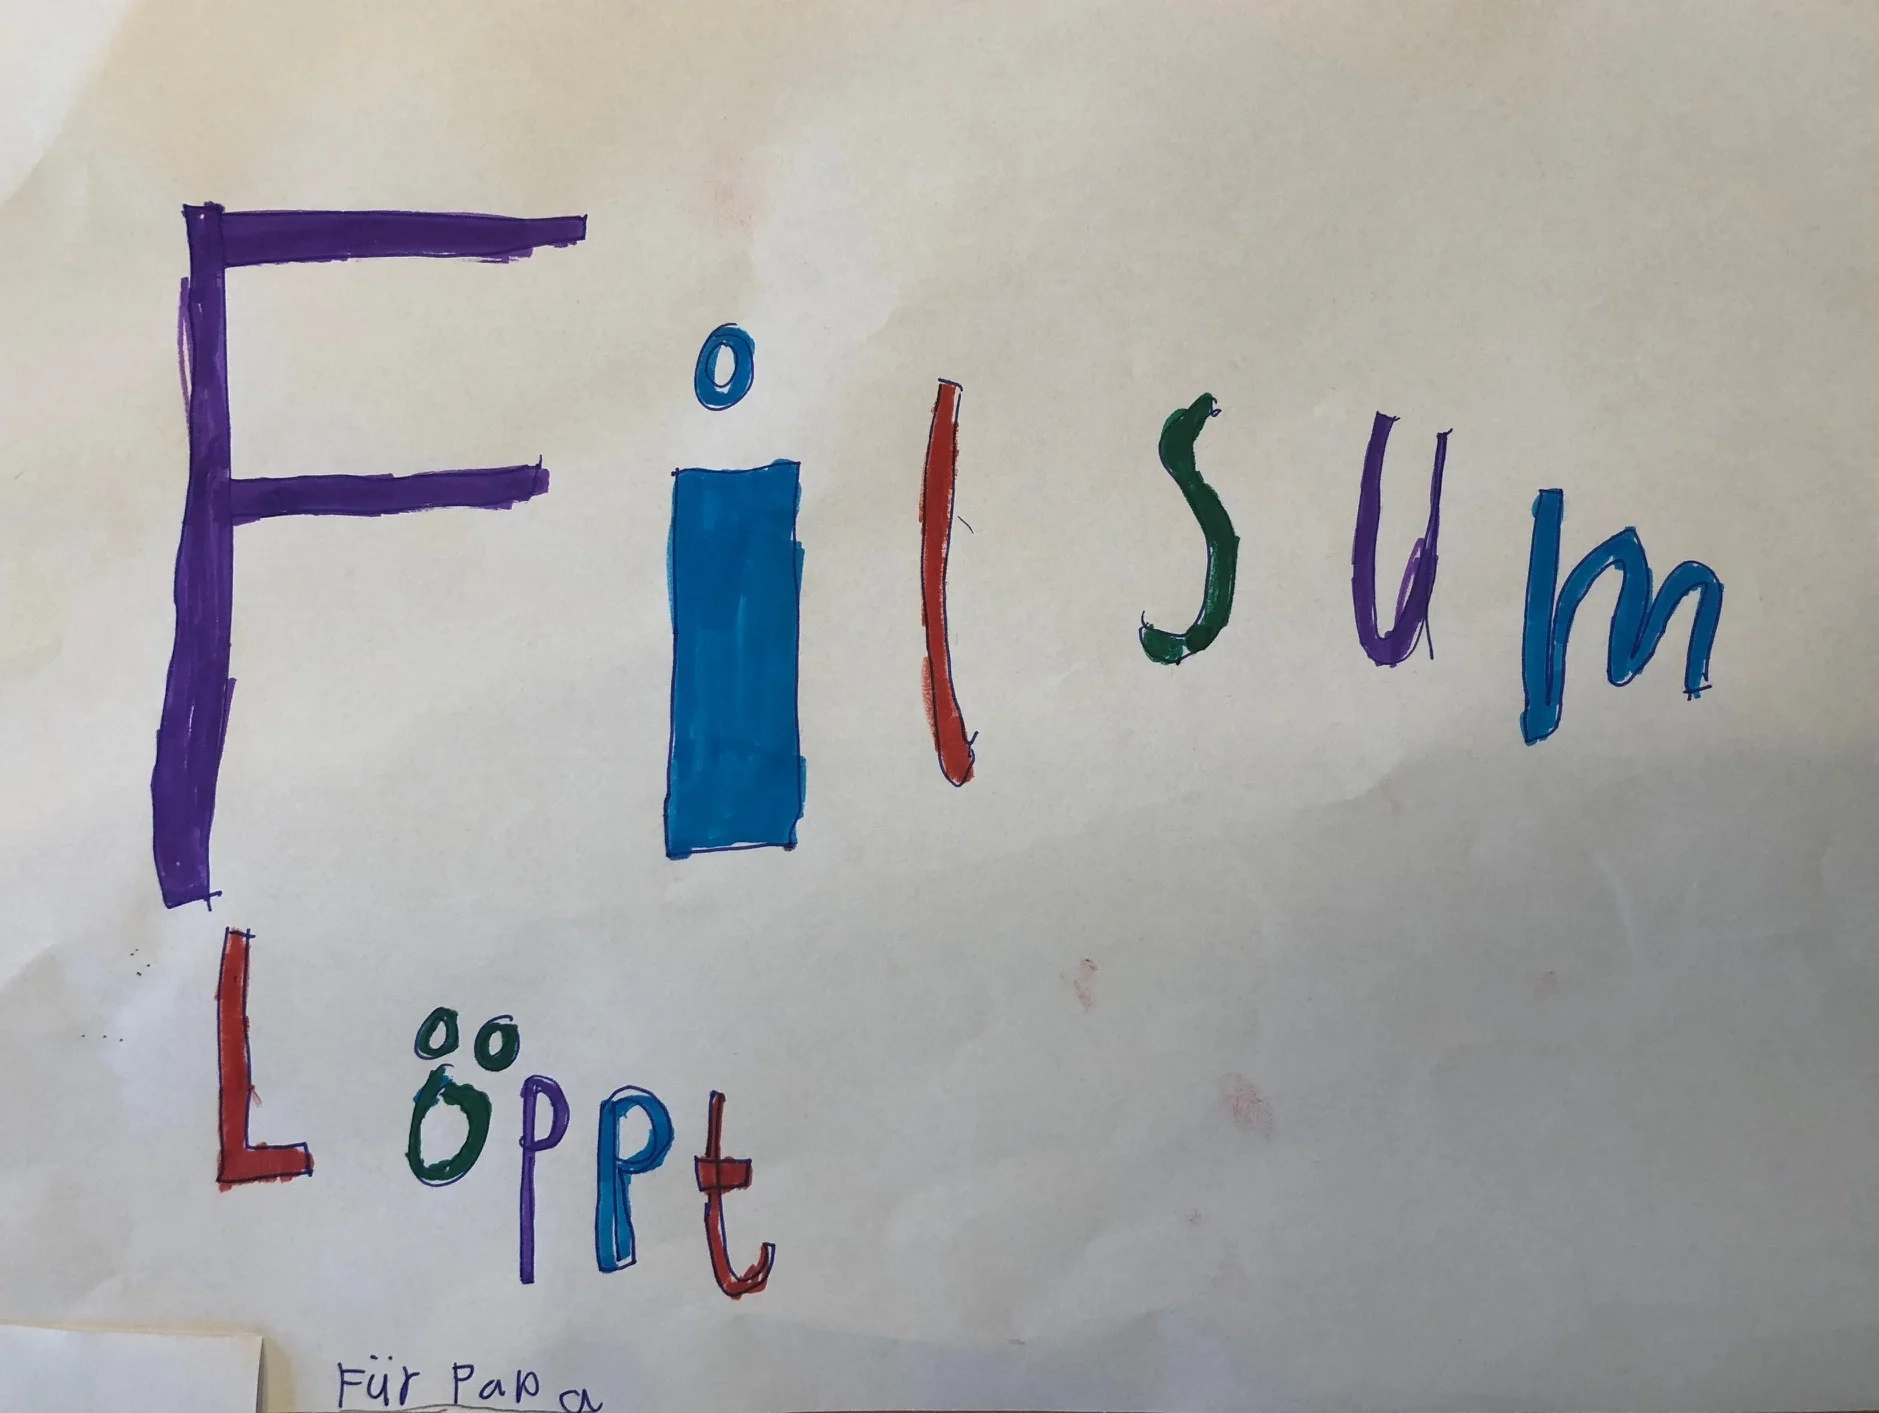 Filsum
Löppt
Für Papa